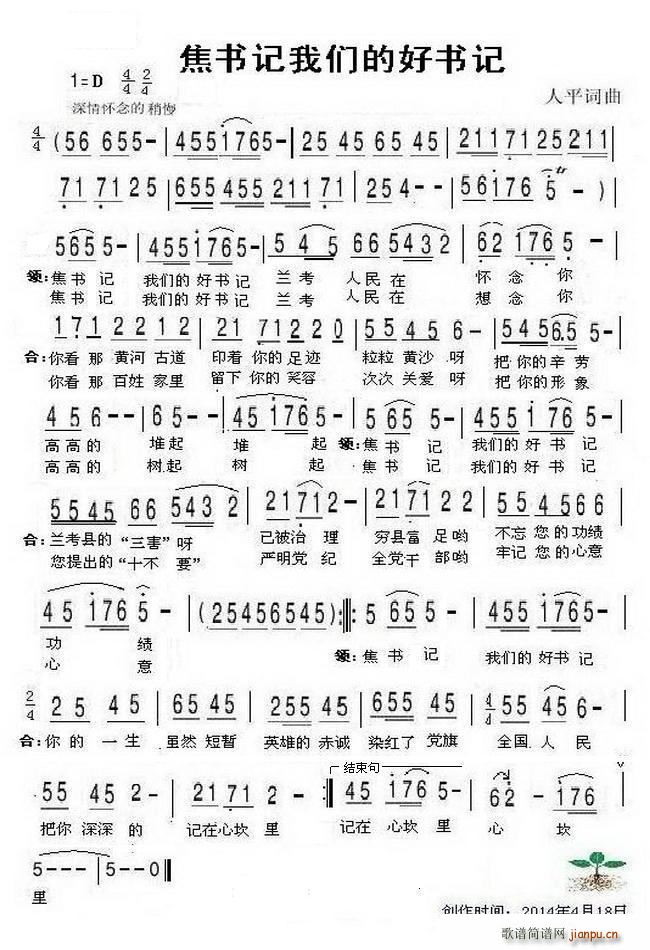 焦书记我们的好书记
1=D 4/4 2/4
深情怀念的 稍慢
人平词曲
4/4 (56 655- | 4551765- | 25 45 65 45 | 211 71 25 211
71 71 25 | 655 455 211 71 | 254-- | 56176 5 - )
5655- | 4551765- | 5 45 66 5432 | 62 176 5 -
领:焦书记 我们的好书记 兰考 人民在 怀念你
焦书记 我们的好书记 兰考 人民在 想念你
171 2212 | 21 71220 | 55456 | 545 6.5 5
合:你看那 黄河古道 印着你的足迹 粒粒黄沙呀 把你的辛劳
你看那 百姓家里 留下你的笑容 次次关爱呀 把你的形象
456-- | 65-- | 451765- | 5 655- | 4551765-
高高的 堆起 堆 起 领:焦书记 我们的好书记
高高的 树起 树 起 焦书记 我们的好书记
5545 66 5432 | 21712- | 217122 | 554566
合:兰考县的“三害”呀 已被治理 穷县富足哟 不忘您的功绩
您提出的“十不要” 严明党纪 全党干部哟 牢记您的心意
45 176 5 - | (25456545) :||: 5 655- | 4551765-
功 绩 领:焦书记 我们的好书记
心 意
2/4 25 45 | 65 45 | 255 45 | 655 45 | 4/4 55 456-
合:你的一生 虽然短暂 英雄的赤诚 染红了党旗 全国人民
55 452- | 21712- :|| 结束句 451765- | 62 - 176
把你深深的 记在心坎里 记在心坎里 心 坎
5--- | 5--0 ||
里
创作时间：2014年4月18日
歌谱简谱网
jianpu.cn